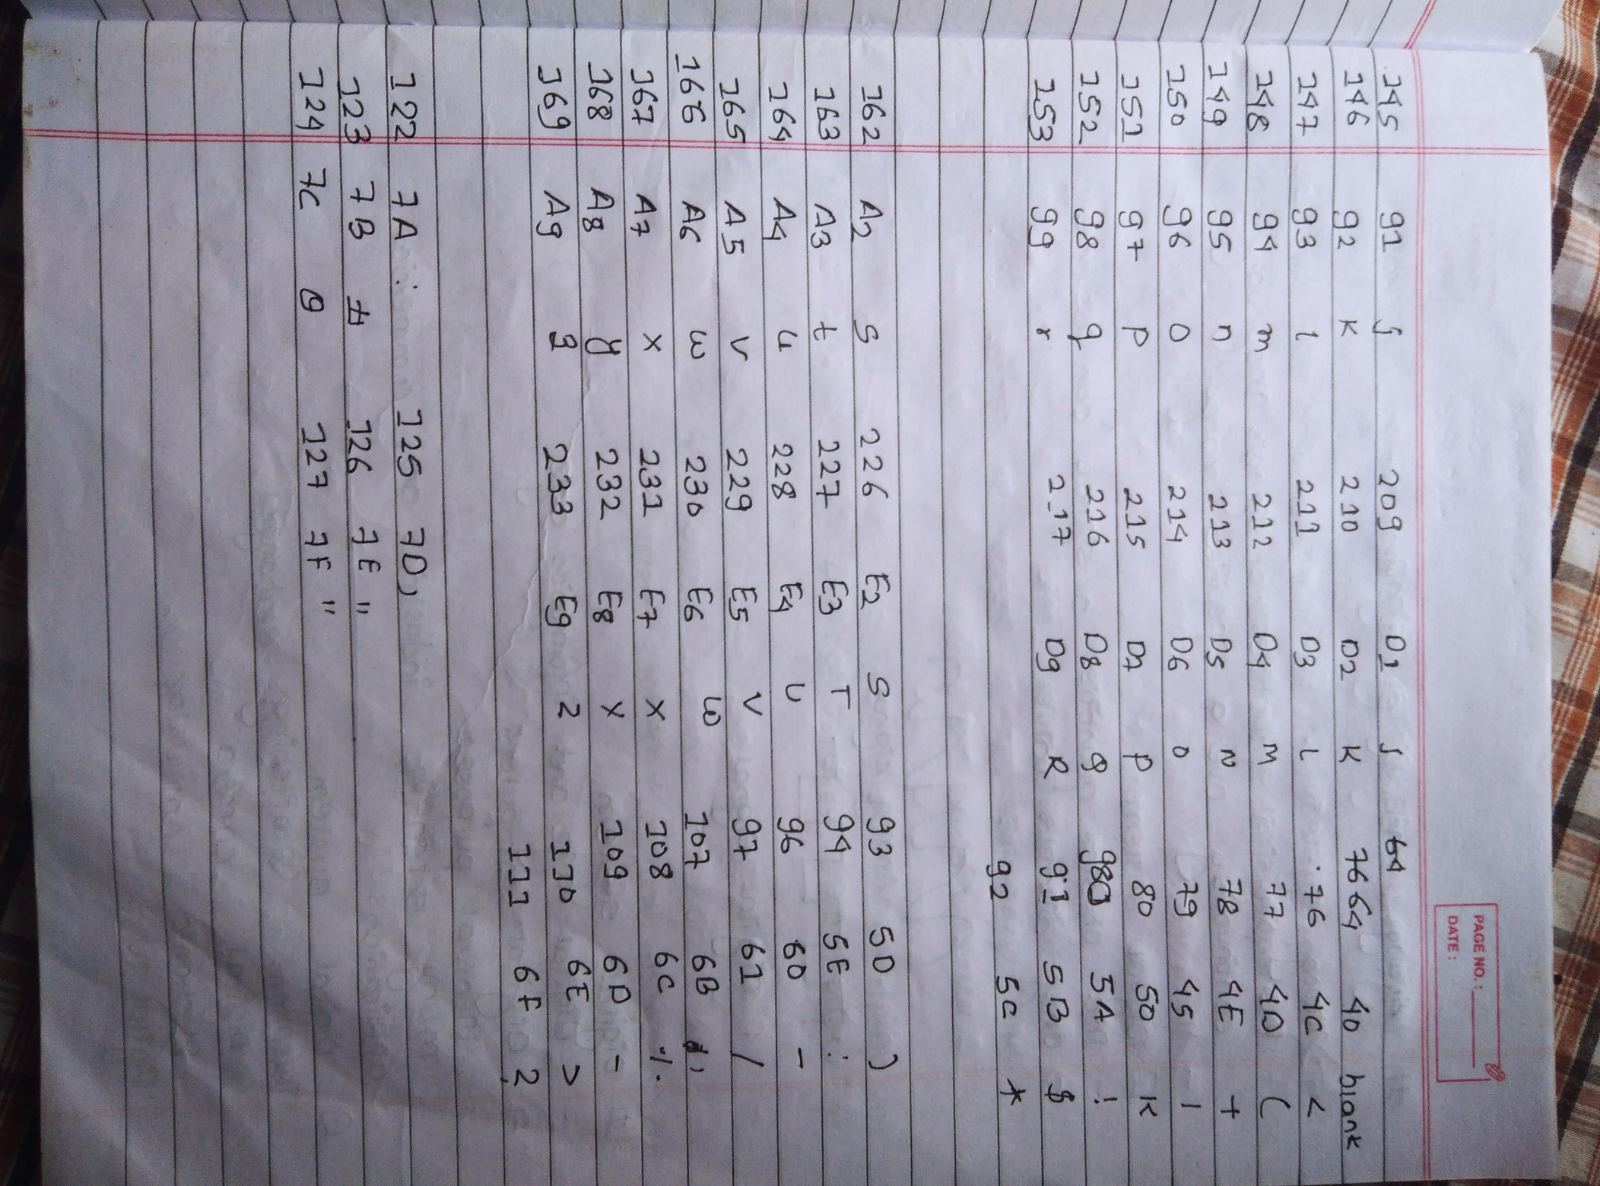 PAGE NO.:
DATE:
145 91 j 209 D1 J 64
146 92 K 210 D2 K 7664 40 blank
147 93 l 211 D3 L 76 4C <
148 94 m 212 D4 M 77 4D (
149 95 n 213 D5 N 78 4E +
150 96 O 214 D6 O 79 45 |
151 97 P 215 D7 P 80 50 K
152 98 q 216 D8 Q 5A !
153 99 r 217 D9 R 91 5B $
92 5C *
162 A2 S 226 E2 S 93 5D )
163 A3 t 227 E3 T 94 5E ;
164 A4 u 228 E4 U 96 60 -
165 A5 V 229 E5 V 97 61 /
166 A6 W 230 E6 W 107 6B ,
167 A7 X 231 E7 X 108 6C %
168 A8 y 232 E8 X 109 6D -
169 A9 z 233 E9 2 110 6E >
111 6F 2
122 7A : 125 7D ,
123 7B # 126 7E "
124 7C @ 127 7F "